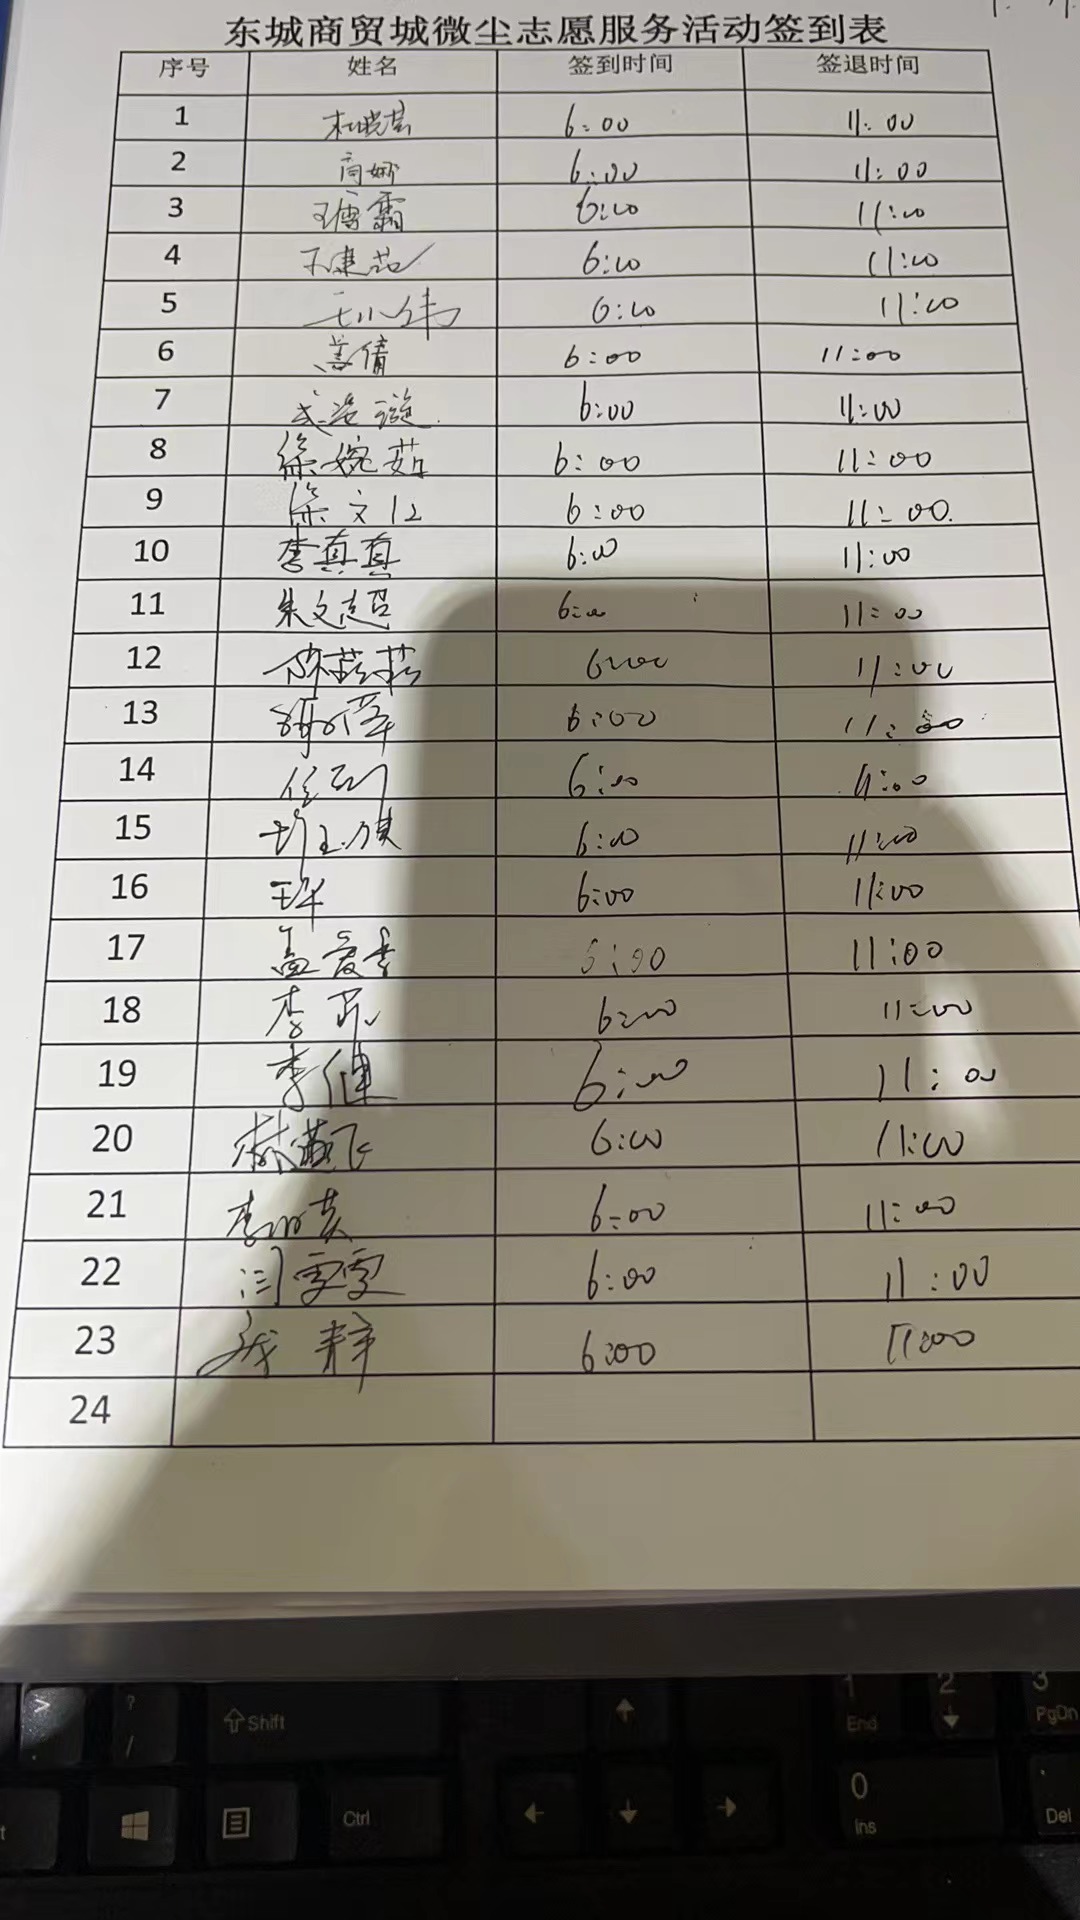 东城商贸城微尘志愿服务活动签到表
序号 姓名 签到时间 签退时间
1 6:00 11:00
2 商娜 6:00 11:00
3 6:00 11:00
4 6:00 11:00
5 王小伟 6:00 11:00
6 姜倩 6:00 11:00
7 6:00 11:00
8 徐婉茹 6:00 11:00
9 徐文江 6:00 11:00.
10 李真真 6:00 11:00
11 6:00 11:00
12 6:00 11:00
13 6:00 11:00
14 6:00 11:00
15 6:00 11:00
16 6:00 11:00
17 孟爱季 6:00 11:00
18 6:00 11:00
19 李健 6:00 11:00
20 林燕飞 6:00 11:00
21 6:00 11:00
22 闫雯雯 6:00 11:00
23 6:00 11:00
24
> ? Shift 1 2 3
. / End PgDn
Ctrl 0 Del
Ins